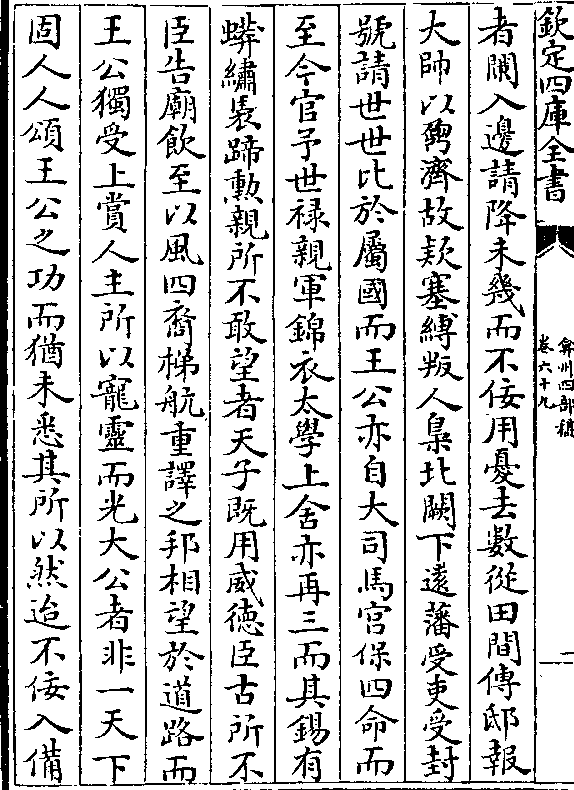 欽定四庫全書
弇州四部稿
卷六十九
二
者闌入邊請降未幾而不佞用憂去數從田間傳邸報
大帥以劉濟故欵塞縛叛人梟北闕下遠藩受吏受封
號請世世比於屬國而王公亦自大司馬宫保四命而
至今官予世禄親軍錦衣太學上舍亦再三而其錫有
蟒繡裊蹄勲親所不敢望者天子既用威徳臣古所不
臣告廟飲至以風四裔梯航重譯之邦相望於道路而
王公獨受上賞人主所以寵靈而光大公者非一天下
固人人頌王公之功而猶未悉其所以然迨不佞入備